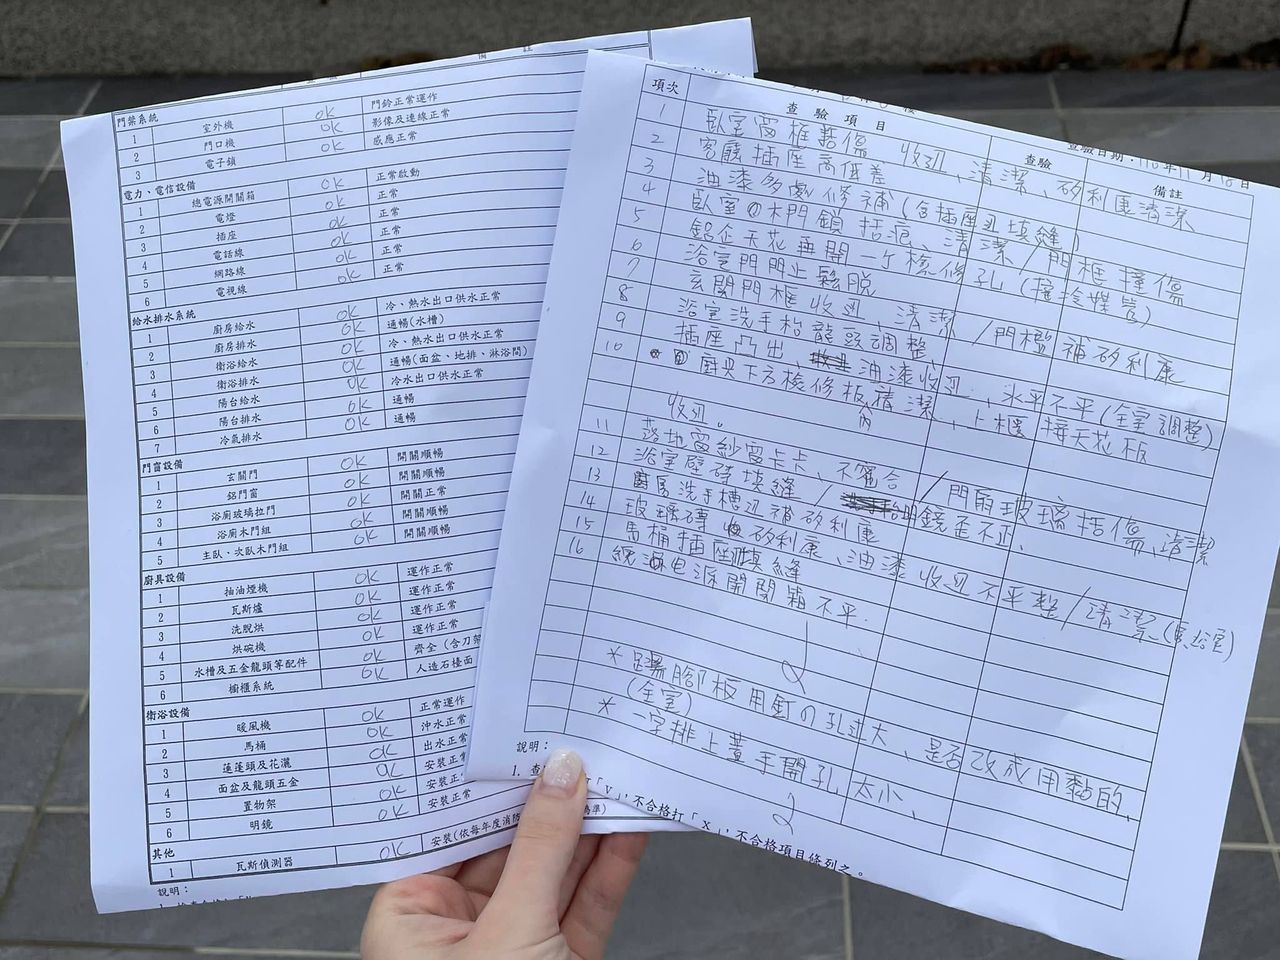 備註
門禁系統
1 室外機 OK 門鈴正常運作
2 門口機 OK 影像及連線正常
3 電子鎖 OK 感應正常
電力、電信設備
1 總電源開關箱 OK 正常啟動
2 電燈 OK 正常
3 插座 OK 正常
4 電話線 OK 正常
5 網路線 OK 正常
6 電視線 OK 正常
給水排水系統
1 廚房給水 OK 冷、熱水出口供水正常
2 廚房排水 OK 通暢(水槽)
3 衛浴給水 OK 冷、熱水出口供水正常
4 衛浴排水 OK 通暢(面盆、地排、淋浴間)
5 陽台給水 OK 冷水出口供水正常
6 陽台排水 OK 通暢
7 冷氣排水 OK 通暢
門窗設備
1 玄關門 OK 開關順暢
2 鋁門窗 OK 開關順暢
3 浴廁玻璃拉門 OK 開關正常
4 浴廁木門組 OK 開關順暢
5 主臥、次臥木門組 OK 開關順暢
廚具設備
1 抽油煙機 OK 運作正常
2 瓦斯爐 OK 運作正常
3 洗脫烘 OK 運作正常
4 烘碗機 OK 運作正常
5 水槽及五金龍頭等配件 OK 齊全(含刀架
6 櫥櫃系統 OK 人造石檯面
衛浴設備
1 暖風機 OK 正常運作
2 馬桶 OK 沖水正常
3 蓮蓬頭及花灑 OK 出水正常
4 面盆及龍頭五金 OK 安裝正
5 置物架 OK 安裝正
6 明鏡 OK 安裝正常
其他
1 瓦斯偵測器 OK 安裝(依每年度消防
說明：
查驗日期：110年11月18日
項次 查驗項目 查驗 備註
1 臥室窗框括傷 收邊、清潔、矽利康清潔
2 客廳插座高低差
3 油漆多處修補(含插座邊填縫)
4 臥室の木門鎖括痕、清潔/門框撞傷
5 鋁企天花再開一个檢修孔(接冷煤管)
6 浴室門門止鬆脫
7 玄關門框收邊、清潔/門檻補矽利康
8 浴室洗手枱龍頭調整
9 插座凸出、油漆收邊、水平不平(全室調整)
10 廚具下方檢修板內清潔、上櫃接天花板
收邊。
11 落地窗紗窗卡卡、不密合/門扇玻璃括傷、清潔
12 浴室壁磚填縫/明鏡歪不正、
13 廚房洗手槽邊補矽利康
14 玻璃磚矽利康、油漆收邊不平整/清潔(浴室)
15 馬桶插座填縫
16 總電源開關箱不平
*踢腳板用釘の孔過大、是否改成用黏的
(全室)
*一字排上蓋手開孔太小、
說明：
1. 查 打「V」，不合格打「X」，不合格項目條列之。